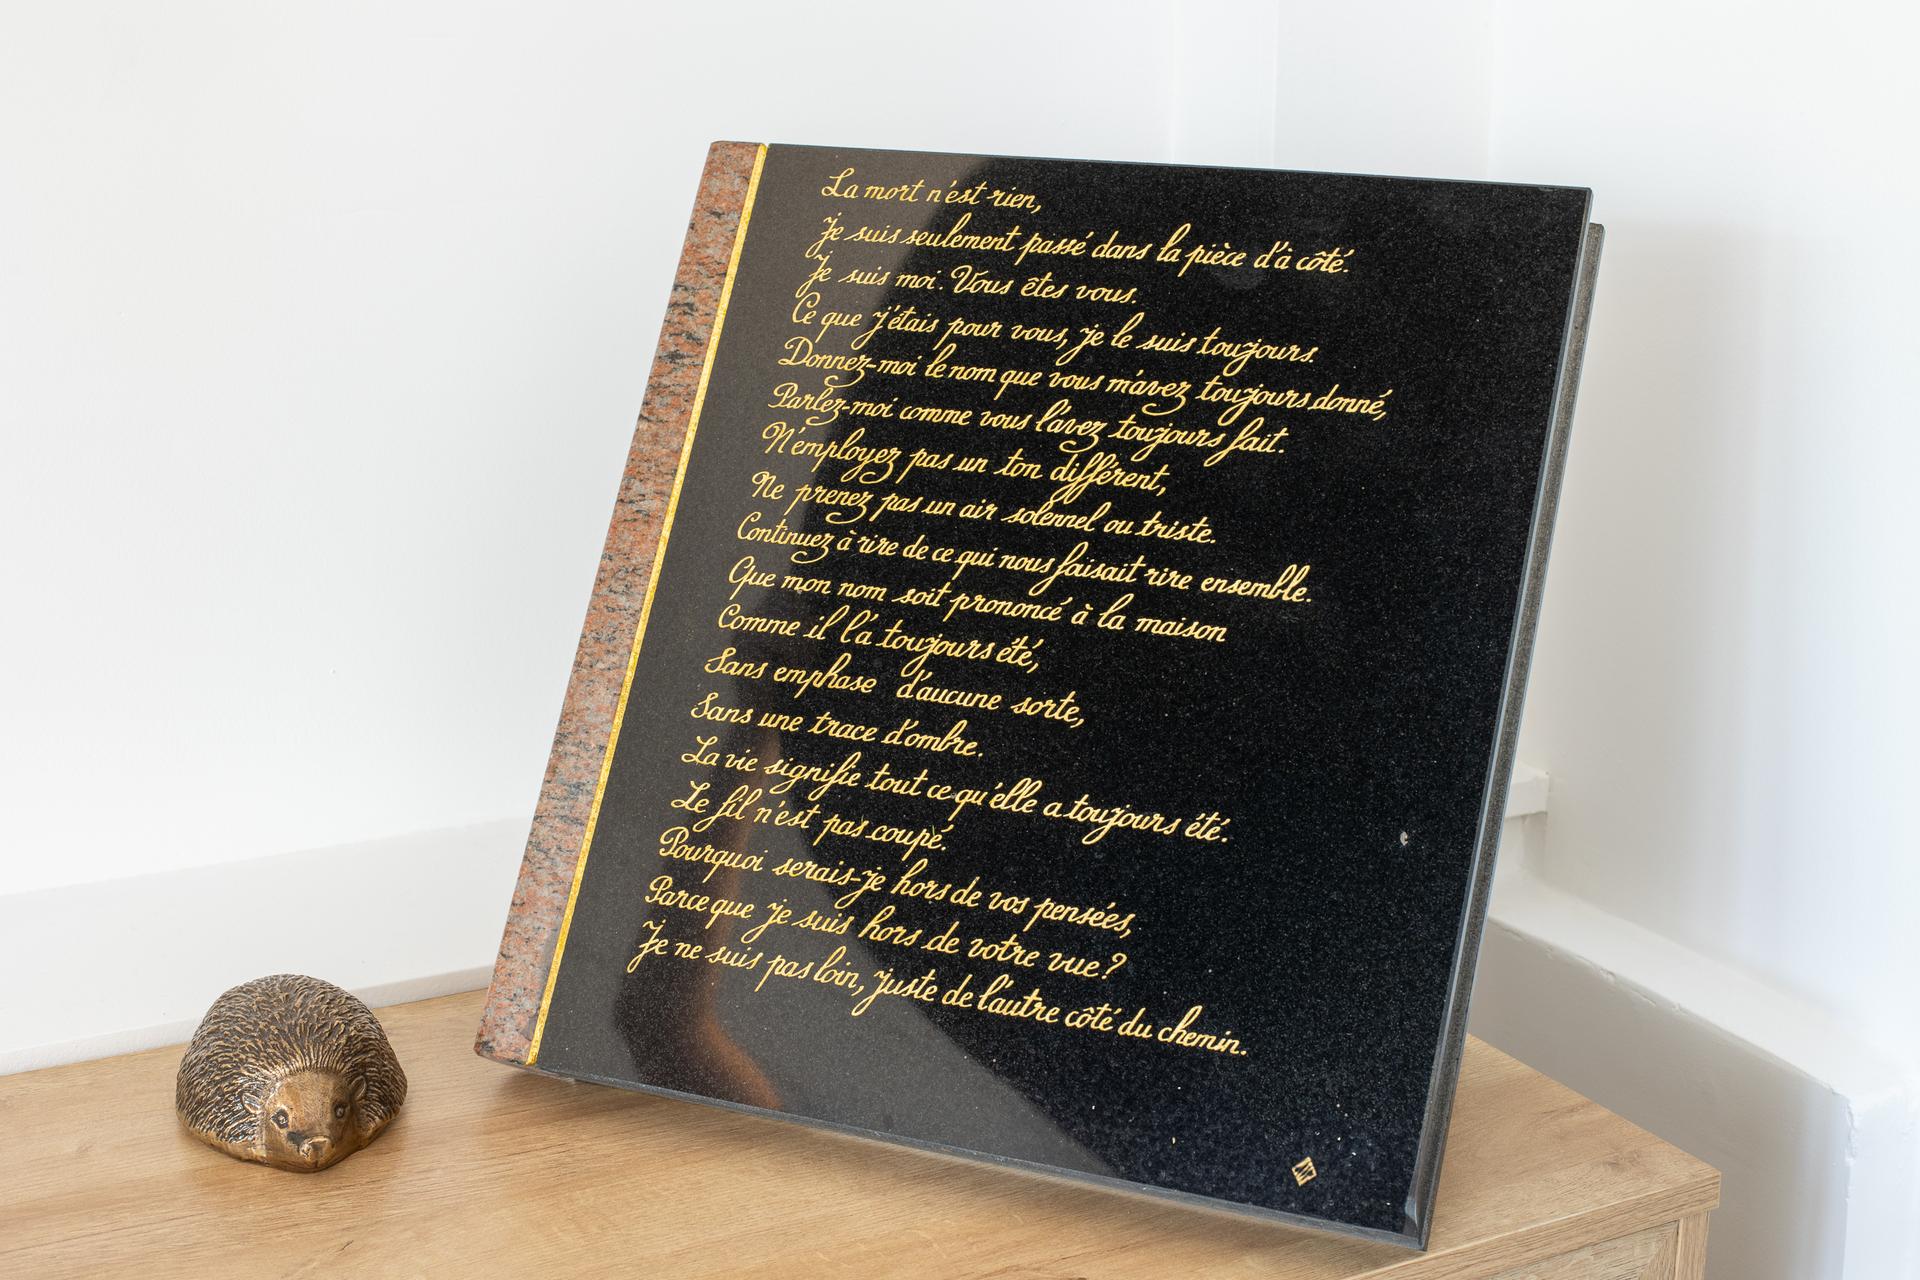 La mort n'est rien,
Je suis seulement passé dans la pièce d'à côté.
Je suis moi. Vous êtes vous.
Ce que j'étais pour vous, je le suis toujours.
Donnez-moi le nom que vous m'avez toujours donné,
Parlez-moi comme vous l'avez toujours fait.
N'employez pas un ton différent,
Ne prenez pas un air solennel ou triste.
Continuez à rire de ce qui nous faisait rire ensemble.
Que mon nom soit prononcé à la maison
Comme il l'a toujours été,
Sans emphase d'aucune sorte,
Sans une trace d'ombre.
La vie signifie tout ce qu'elle a toujours été.
Le fil n'est pas coupé.
Pourquoi serais-je hors de vos pensées,
Parce que je suis hors de votre vue ?
Je ne suis pas loin, juste de l'autre côté du chemin.